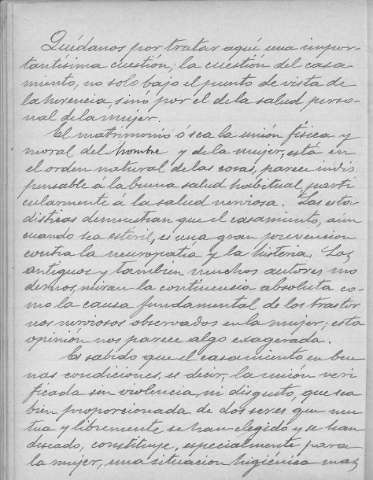 Quédanos por tratar aquí una impor-
tantísima cuestión; la cuestión del casa-
miento, no solo bajo el punto de vista de
la herencia, sinó por el de la salud perso-
nal de la mujer.
El matrimonio ó sea la unión física y
moral del hombre y de la mujer, está en
el orden natural de las cosas, parece indis
pensable á la buena salud habitual, parti
cularmente á la salud nerviosa. Las esta-
disticas demuestran que el casamiento, aún
cuando sea estéril, es una gran prevención
contra la neuropatía y la histeria. Los
antiguos y tambien muchos autores mo
dernos, miran la continencia absoluta co-
mo la causa fundamental de los trastor
nos nerviosos observados en la mujer; esta
opinión nos parece algo exagerada.
Es sabido que el casamiento en bue
nas condiciónes, es decir, la unión veri
ficada sin violencia, ni disgusto, que sea
bien proporcionada de dos seres que mu
tua y libremente se han elegido y se han
deseado, constituye, especialmente para
la mujer, una situacion higiénica mas